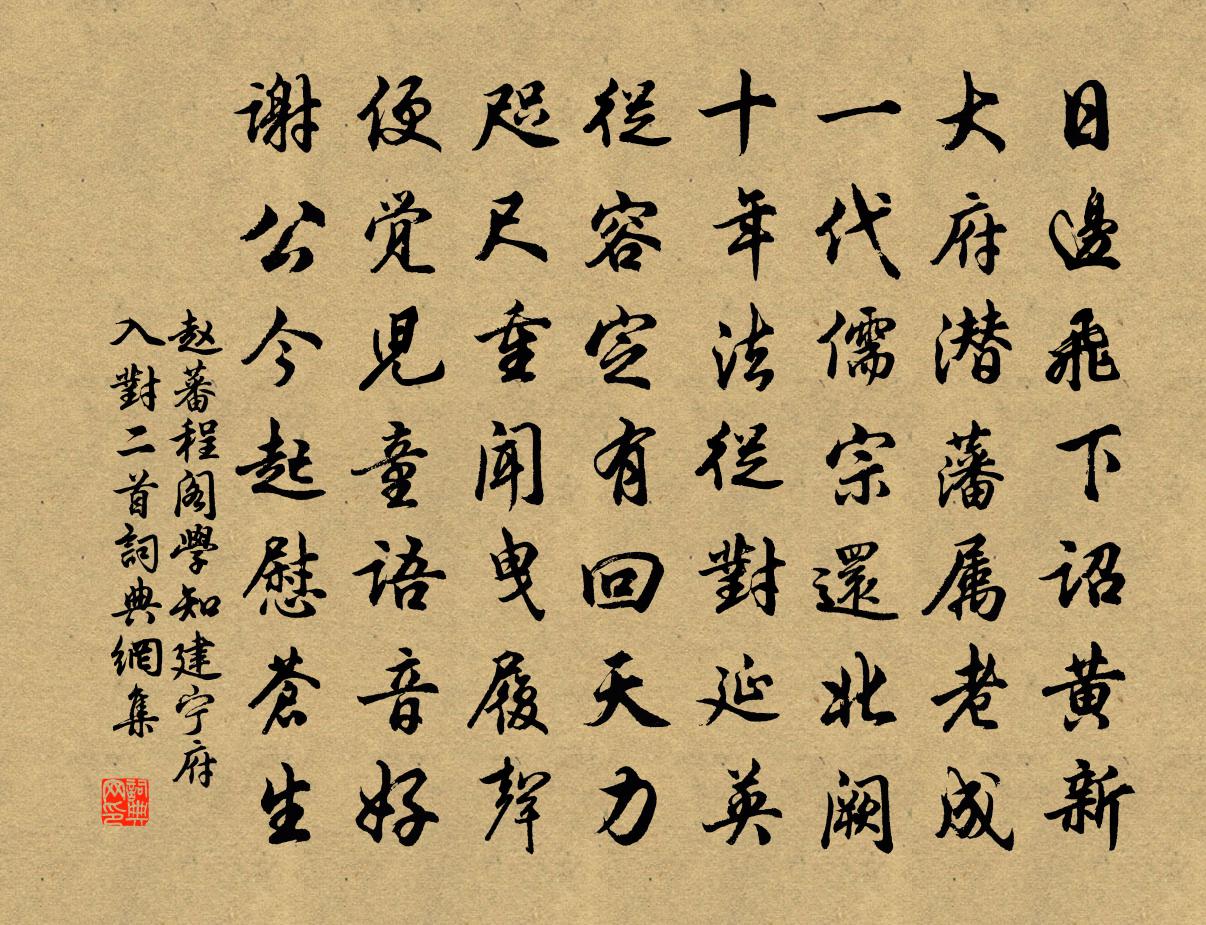 日邊飛下詔黄新
大府潜藩属老成
一代儒宗還北阙
十年法從對延英
從容定有回天力
咫尺重聞曳履聲
便覺児童語音好
谢公今起慰蒼生
赵蕃程阁學知建宁府
入對二首詞典網集
詞典
网印